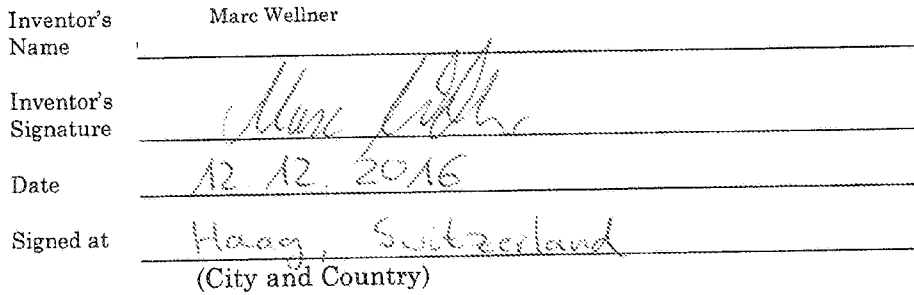 Inventor's Name Marc Wellner
Inventor's Signature Marc Wellner
Date 12.12.2016
Signed at Haag, Switzerland
(City and Country)